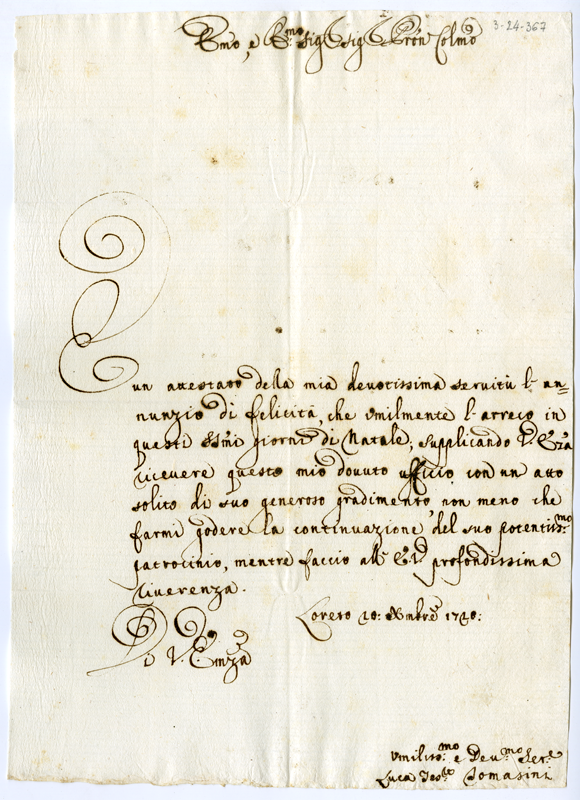 3-24-367
Emo, e Rmo Sig Sig Pron Colmo
È un attestato della mia devotissima servitù l'an=
nunzio di felicità, che umilmente l'arreco in
questi Ssmi giorni di Natale; supplicando V. Eza
ricevere questo mio dovuto ufficio con un atto
solito di suo generoso gradimento, non meno che
farmi godere la continuazione del suo potentissmo
patrocinio, mentre faccio all' E.V. profondissima
riverenza.
Loreto 20: Xmbre 1720:
Di V. Emza
Umilissmo e Devmo Sere
Luca Tomasini